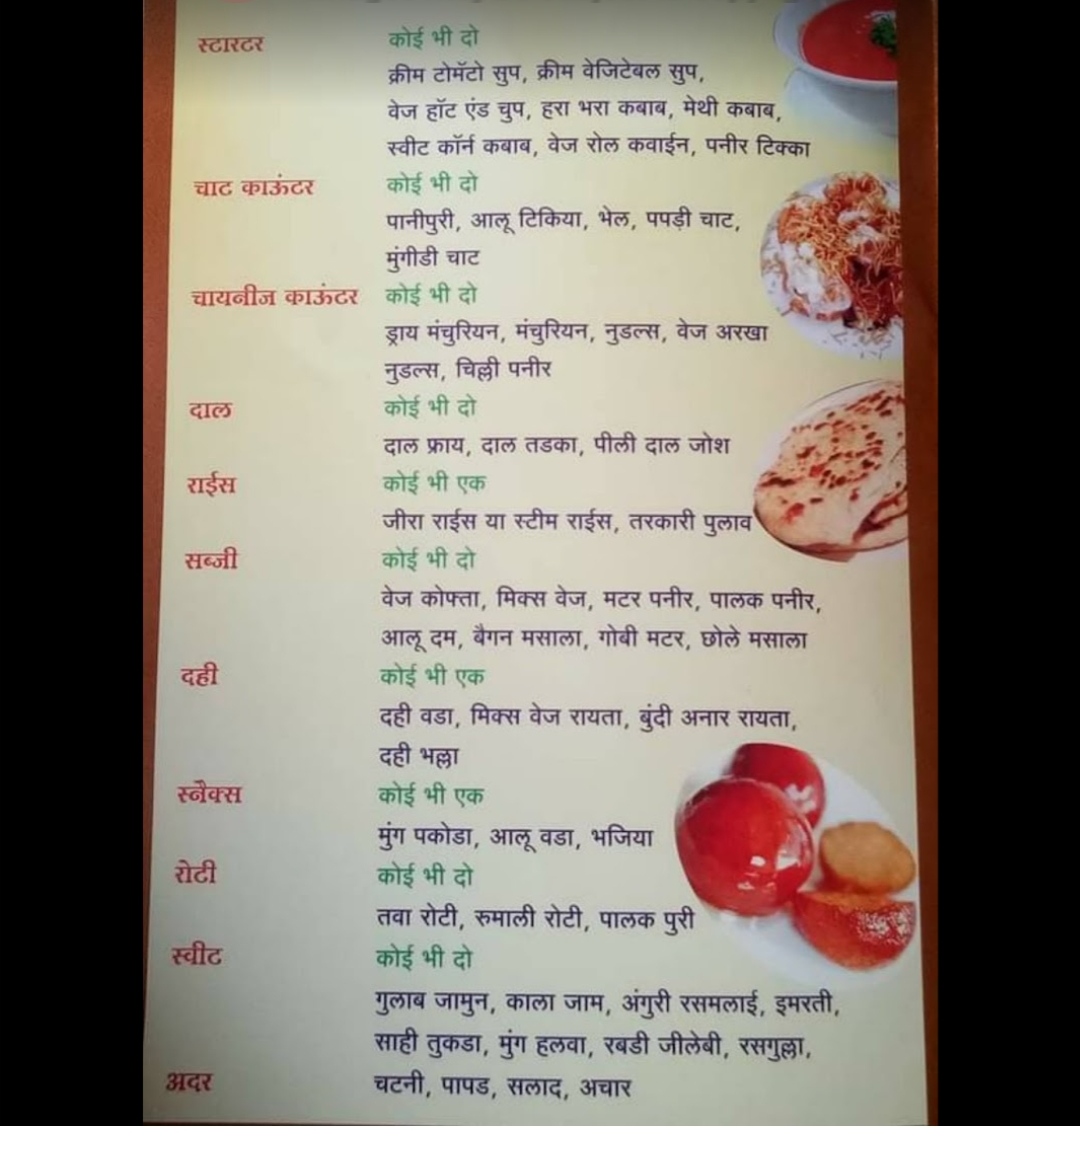 स्टारटर कोई भी दो
क्रीम टोमॅटो सुप, क्रीम वेजिटेबल सुप,
वेज हॉट एंड चुप, हरा भरा कबाब, मेथी कबाब,
स्वीट कॉर्न कबाब, वेज रोल कवाईन, पनीर टिक्का
चाट काऊंटर कोई भी दो
पानीपुरी, आलू टिकिया, भेल, पपड़ी चाट,
मुंगीडी चाट
चायनीज काऊंटर कोई भी दो
ड्राय मंचुरियन, मंचुरियन, नुडल्स, वेज अरखा
नुडल्स, चिल्ली पनीर
दाल कोई भी दो
दाल फ्राय, दाल तडका, पीली दाल जोश
राईस कोई भी एक
जीरा राईस या स्टीम राईस, तरकारी पुलाव
सब्जी कोई भी दो
वेज कोफ्ता, मिक्स वेज, मटर पनीर, पालक पनीर,
आलू दम, बैगन मसाला, गोबी मटर, छोले मसाला
दही कोई भी एक
दही वडा, मिक्स वेज रायता, बुंदी अनार रायता,
दही भल्ला
स्नैक्स कोई भी एक
मुंग पकोडा, आलू वडा, भजिया
रोटी कोई भी दो
तवा रोटी, रुमाली रोटी, पालक पुरी
स्वीट कोई भी दो
गुलाब जामुन, काला जाम, अंगुरी रसमलाई, इमरती,
साही तुकडा, मुंग हलवा, रबडी जीलेबी, रसगुल्ला,
अदर चटनी, पापड, सलाद, अचार